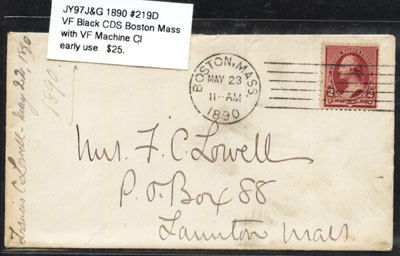 JY97J&G 1890 #219D
VF Black CDS Boston Mass
with VF Machine Cl
early use $25.
Francis C Lowell - May 22, 1890
1890.
BOSTON, MASS.
MAY 23
11-AM
1890
2 2
Mrs. F. C. Lowell
P. O. Box 88
Taunton Mass